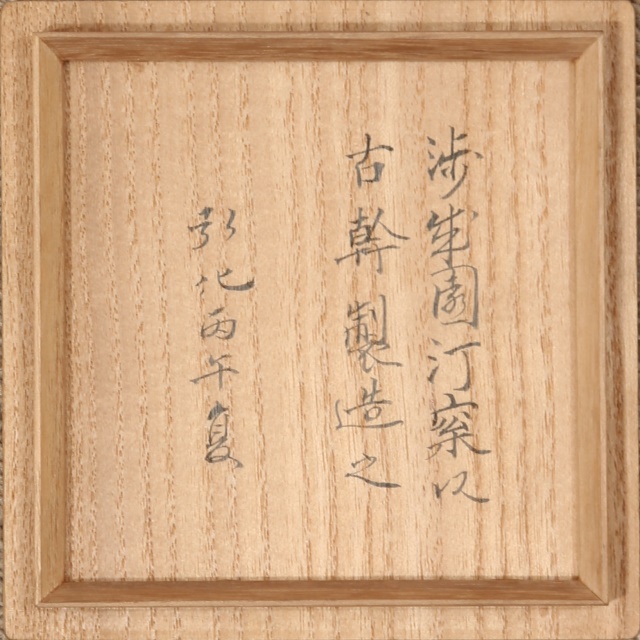 渉成園汀以
古幹製造之
弘化丙午夏